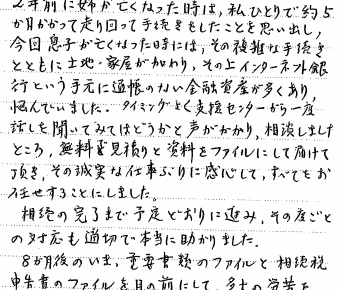 2年前に姉が亡くなった時は、私ひとりで約5
か月かかって走り回って手続きをしたことを思い出し、
今回息子が亡くなった時には、その複雑な手続き
とともに土地・家屋が加わり、その上インターネット銀
行という手元に通帳のない金融資産が多くあり、
悩んでいました。タイミングよく支援センターから一度
話しを聞いてみてはどうかと声がかかり、相談しました
ところ、無料で見積りと資料をファイルにして届けて
頂き、その誠実な仕事ぶりに感心して、すべてをお
任せすることにしました。
相続の完了まで予定どおりに進み、その度ごと
の対応も適切で本当に助かりました。
8か月後のいま、重要書類のファイルと相続税
申告書のファイルを目の前にして、多大の労苦を